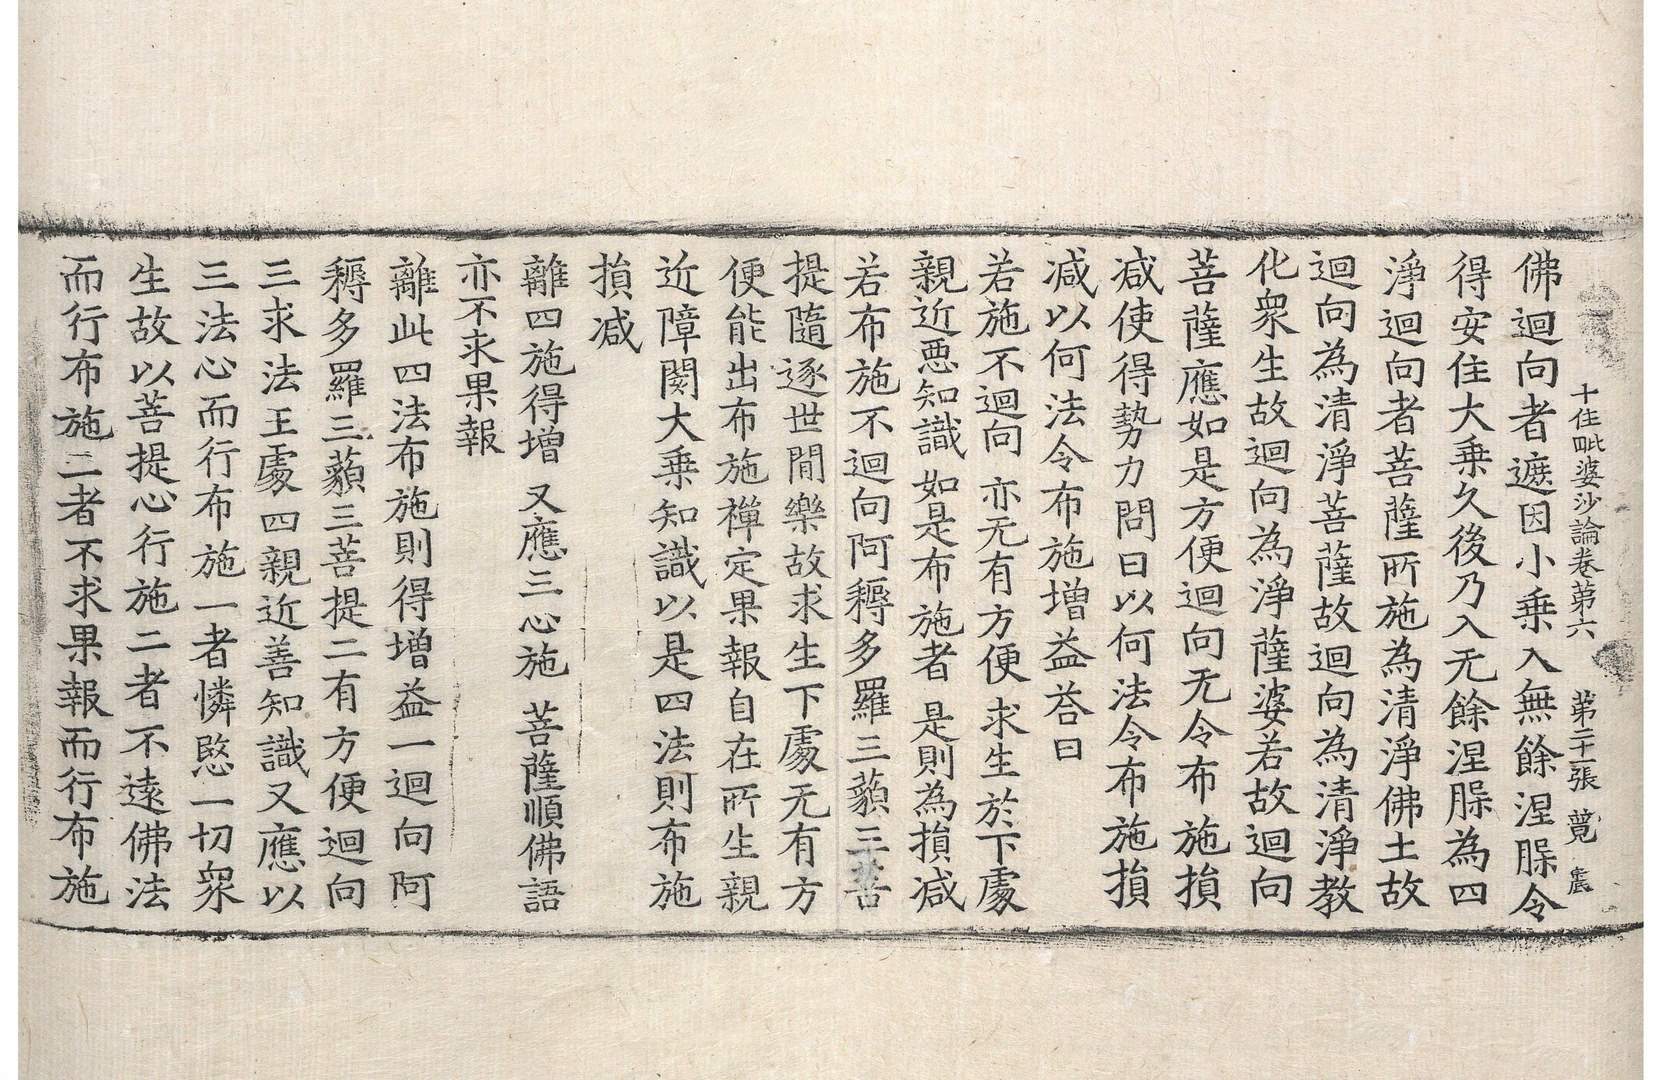 十住毗婆沙論卷第六　第二十一張　蕒
佛迴向者遮因小乗入無餘涅腺令
得安住大乗久後乃入无餘涅腺為四
淨迴向者菩薩所施為清淨佛土故
迴向為清淨菩薩故迴向為清淨教
化衆生故迴向為淨薩婆若故迴向
菩薩應如是方便迴向无令布施損
减使得勢力問曰以何法令布施損
减以何法令布施增益荅曰
若施不迴向　亦无有方便　求生於下䖏
親近悪知識　如是布施者　是則為損减
若布施不迴向阿耨多羅三藐三菩
提隨逐世間樂故求生下䖏无有方
便能出布施禪定果報自在所生親
近障閡大乗知識以是四法則布施
損减
離四施得增　又應三心施　菩薩順佛語
亦不求果報
離此四法布施則得增益一迴向阿
耨多羅三藐三菩提二有方便迴向
三求法王䖏四親近善知識又應以
三法心而行布施一者憐愍一切衆
生故以菩提心行施二者不遠佛法
而行布施三者不求果報而行布施